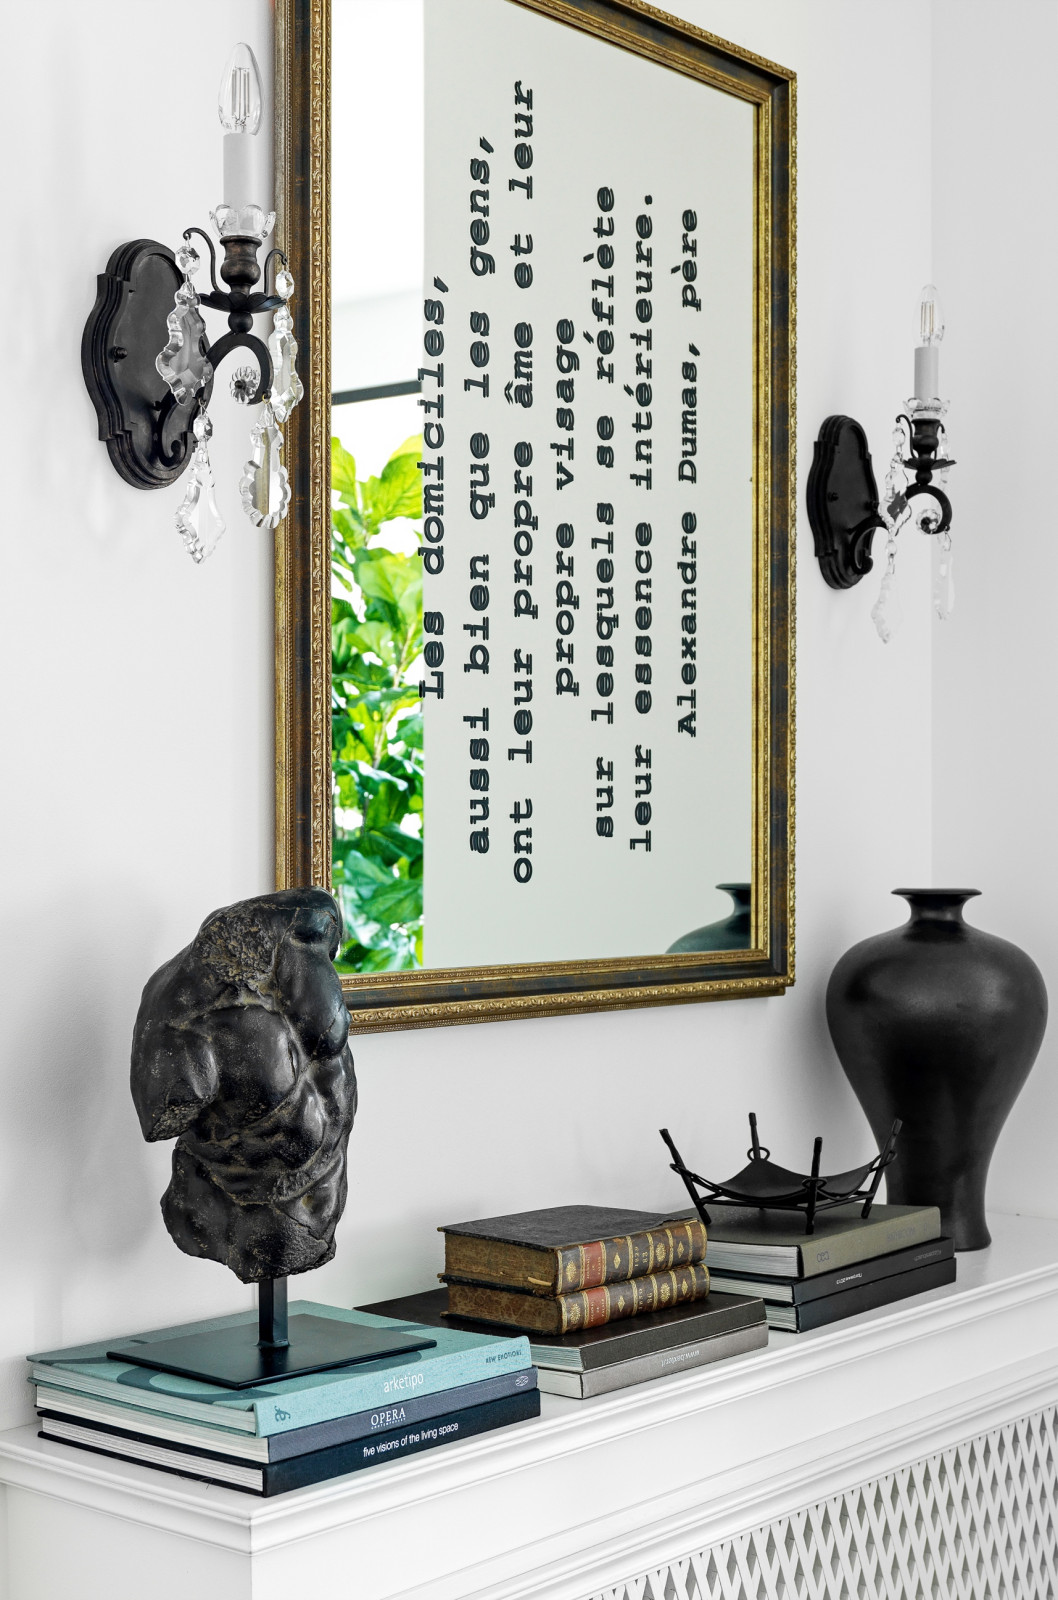 Les domiciles,
aussi bien que les gens,
ont leur propre âme et leur
propre visage
sur lesquels se réflète
leur essence intérieure.
Alexandre Dumas, père
NEW EMOTIONS
arketipo
OPERA
five visions of the living space